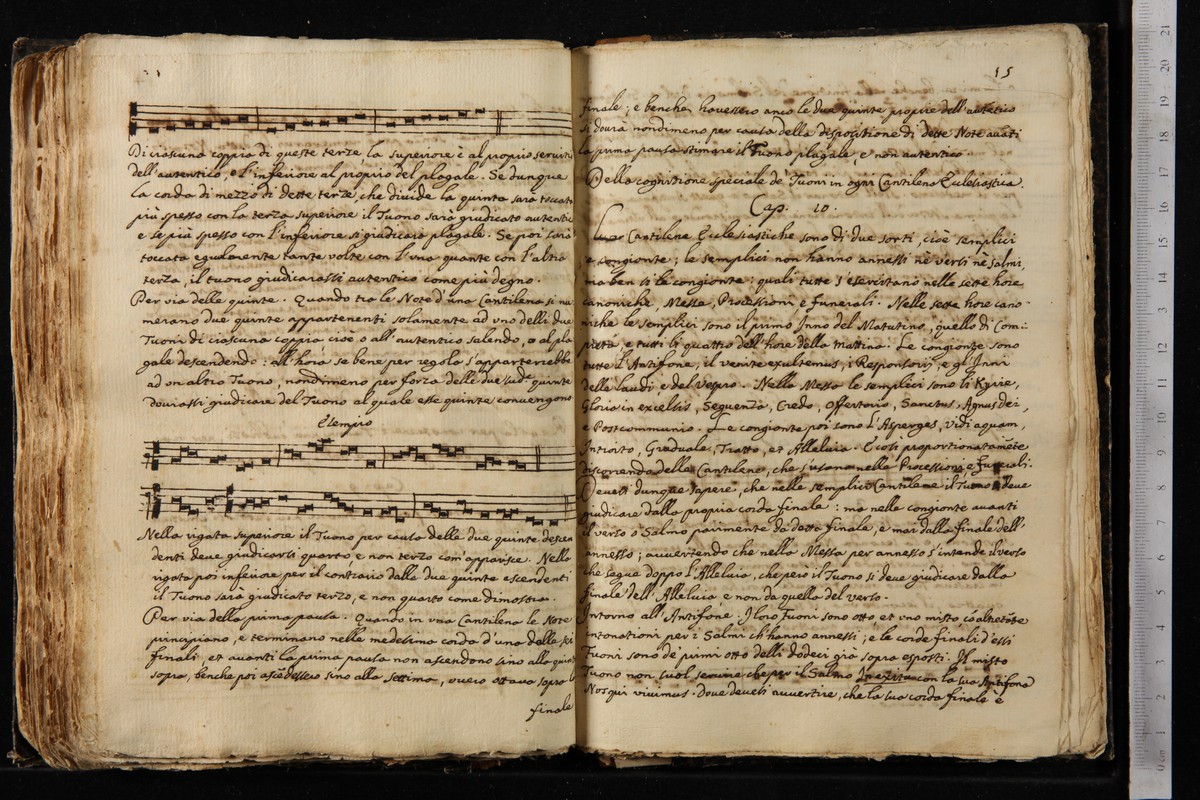 Di ciascuna coppia di queste terze la superiore è al proprio
dell'autentico, e l'inferiore al proprio del plagale. Se dunque
la corda di mezzo di dette terze, che divide la quinta sarà toccata
più spesso con la terza superiore il Tuono sarà giudicato autentic
e se più spesso con l'inferiore si giudicarà plagale. Se poi sarà
toccata egualmente tante volte con l'una quante con l'altra
terza, il tuono giudicarassi autentico come più degno.
Per via delle quinte. Quando tra le Note d'una Cantilena si nu
merano due quinte appartenenti solamente ad uno delli due
Tuoni di ciascuna coppia cioè o all'autentico salendo, o al pla
gale descendendo: all'hora se bene per regola s'appartenrebbe
ad un altro Tuono, nondimeno per forza delle due sud.e quinte
dourassi giudicare del Tuono al quale esse quinte convengono
Essempio
Nella rigata superiore il Tuono per causa delle due quinte descen
denti deve giudicarsi quarto, e non terzo com'apparisce. Nella
rigata poi inferiore per il contrario dalle due quinte ascendenti
il Tuono sarà giudicato terzo, e non quarto come dimostra.
Per via della prima pausa. Quando in una Cantilena le Note
principiano, e terminano nella medesima corda d'una delle
finali, et avanti la prima pausa non ascendono sino alla
sopra, benche poi ascedessero sino alla settima, overo ottava sopra
finale
15
finale; e benche havessero anco le due quinte proprie dell'autetico
si dourà nondimeno per causa della dispositione di dette Note avati
la prima pausa stimare il Tuono plagale, e non autentico.
Della cognitione speciale de' Tuoni in ogni Cantilena Eclesiastica.
Cap. 10.
Cantilene Eclesiastiche sono di due sorti, cioè semplici
e congionte; le semplici non hanno annessi nè versi nè salmi,
ma ben si le congionte: quali tutte s'esercitano nelle sette hore
canoniche, Messa, Processioni e funerali. Nelle sette hore cano-
niche le semplici sono il primo Inno del Matutino, quello di Com-
pieta, e tutti li quattro dell'hore della mattina. Le congionte sono
tutte l'Antifone, il venite exultemus, i Responsorij, e gl'Inni
delle laudi, e del Vespro. Nella Messa le semplici sono li Kyrie,
Gloria in excelsis, Sequenza, Credo, Offertorio, Sanctus, Agnus dei,
e Postcommunio. Le congionte poi sono l'Asperges, vidi aquam,
Introito, Graduale, Tratto, et Alleluia. E così proportionatamēte
discorrendo delle Cantilene, che s'usano nelle Processioni e funerali.
Devesi dunque sapere, che nelle semplici Cantilene il Tuono si deve
giudicare dalla propria corda finale: ma nelle congionte avanti
il verso o Salmo parimente da detta finale, e mai dalla finale dell'
annesso; avvertendo che nella Messa per annesso s'intende il verso
che segue doppo l'Alleluia, che però il Tuono si deve giudicare dalla
finale dell'Alleluia, e non da quella del verso.
Intorno all'Antifone. I loro Tuoni sono otto et uno misto cō altretāte
intonationi per i Salmi ch'hanno annessi; e le corde finali d'essi
Tuoni sono de' primi otto delli dodeci già sopra esposti. Il misto
Tuono non suol servire che per il Salmo In exitu con la sua Antifona
Nos qui vivimus. Dove devesi avvertire, che la sua corda finale è